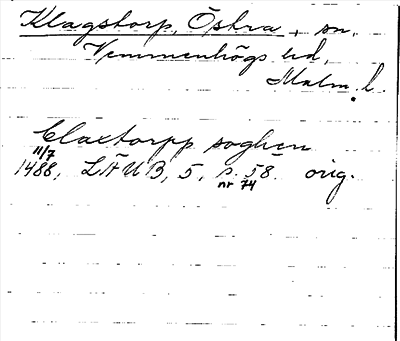 Klagstorp, Östra, sn.
Vemmenhögs hd,
Malm. l.
Claxtorpp soghen
11/7
1488, LÄUB, 5, s. 58. orig.
nr 74